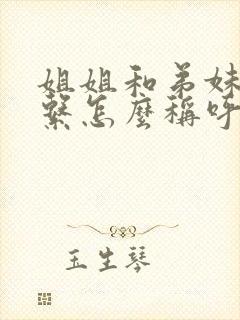 姐姐和弟妹
繫怎麼稱呼
玉生琴